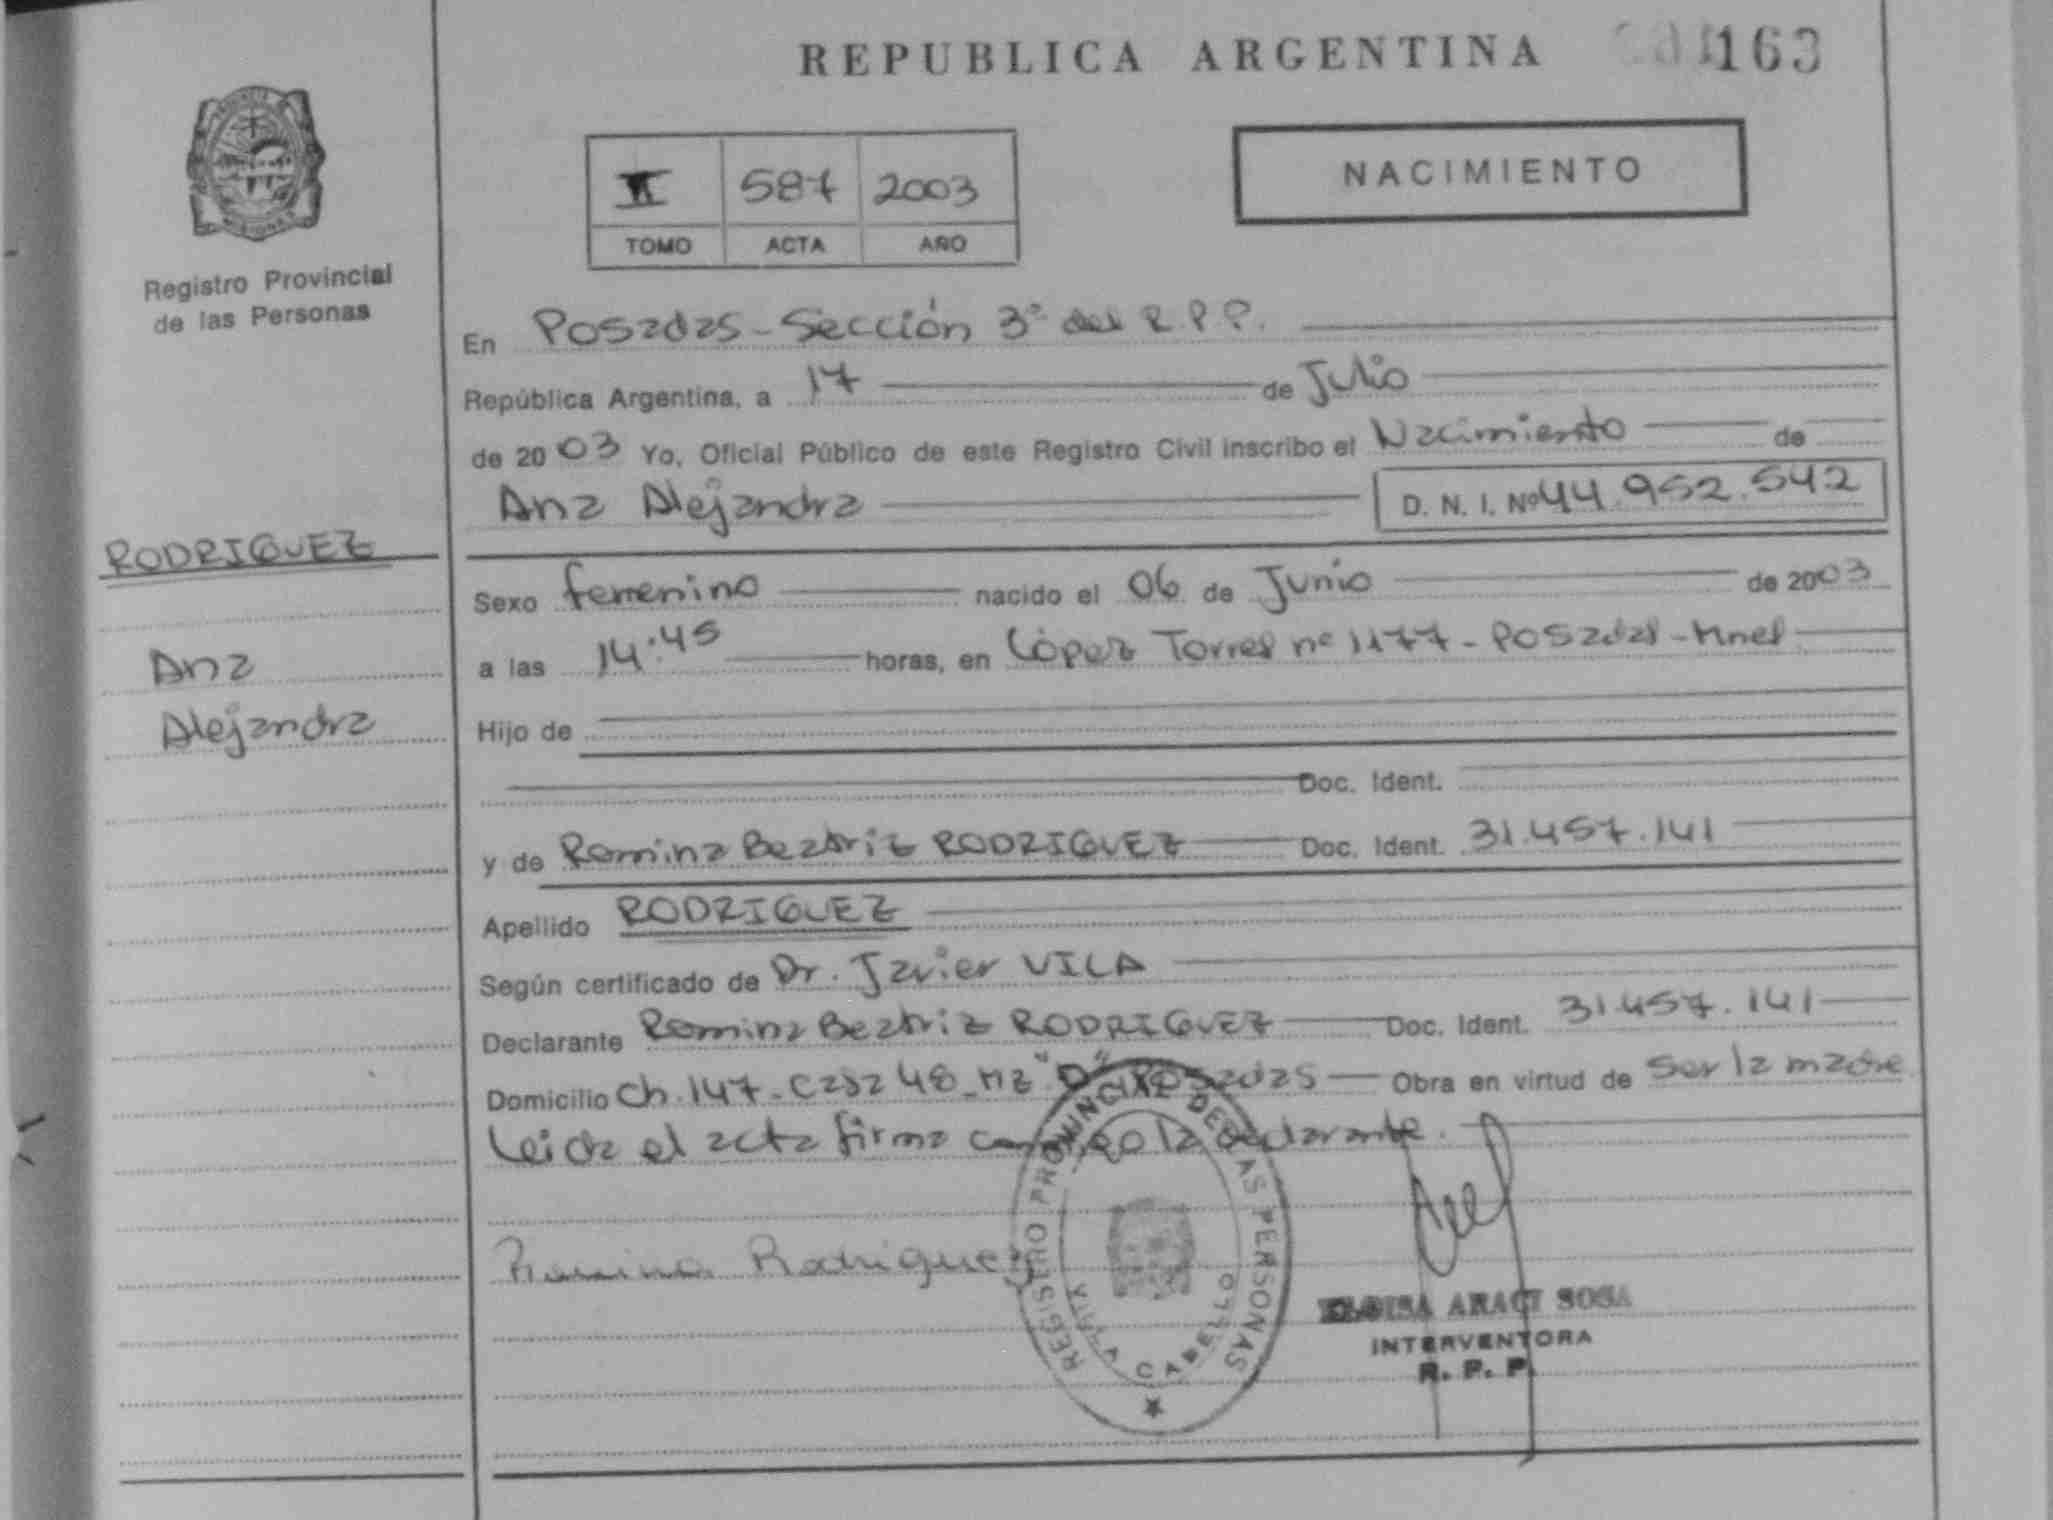 REPUBLICA ARGENTINA 163
NACIMIENTO
587 2003
TOMO ACTA AÑO
Registro Provincial
de las Personas
En Posadas - Sección 3ª del R.P.P.
República Argentina, a 17 de Julio
de 2003 Yo, Oficial Público de este Registro Civil inscribo el Nacimiento de
Ana Alejandra D. N. I. Nº 44.952.542
RODRIGUEZ
Ana
Alejandra
Sexo femenino nacido el 06 de Junio de 2003
a las 14:45 horas, en López Torres nº 1177 - Posadas - Mnes
Hijo de
Doc. Ident.
y de Romina Beatriz RODRIGUEZ Doc. Ident. 31.457.141
Apellido RODRIGUEZ
Según certificado de Dr. Javier VILA
Declarante Romina Beatriz RODRIGUEZ Doc. Ident. 31.457.141
Domicilio Ch. 147 - Casa 48 - Mz "D" Posadas Obra en virtud de ser la madre
Leida el acta firma la declarante.
Romina Rodriguez
REGISTRO PROVINCIAL DE LAS PERSONAS
VILLA CABELLO
ELOISA ARACI SOSA
INTERVENTORA
R. P. P.